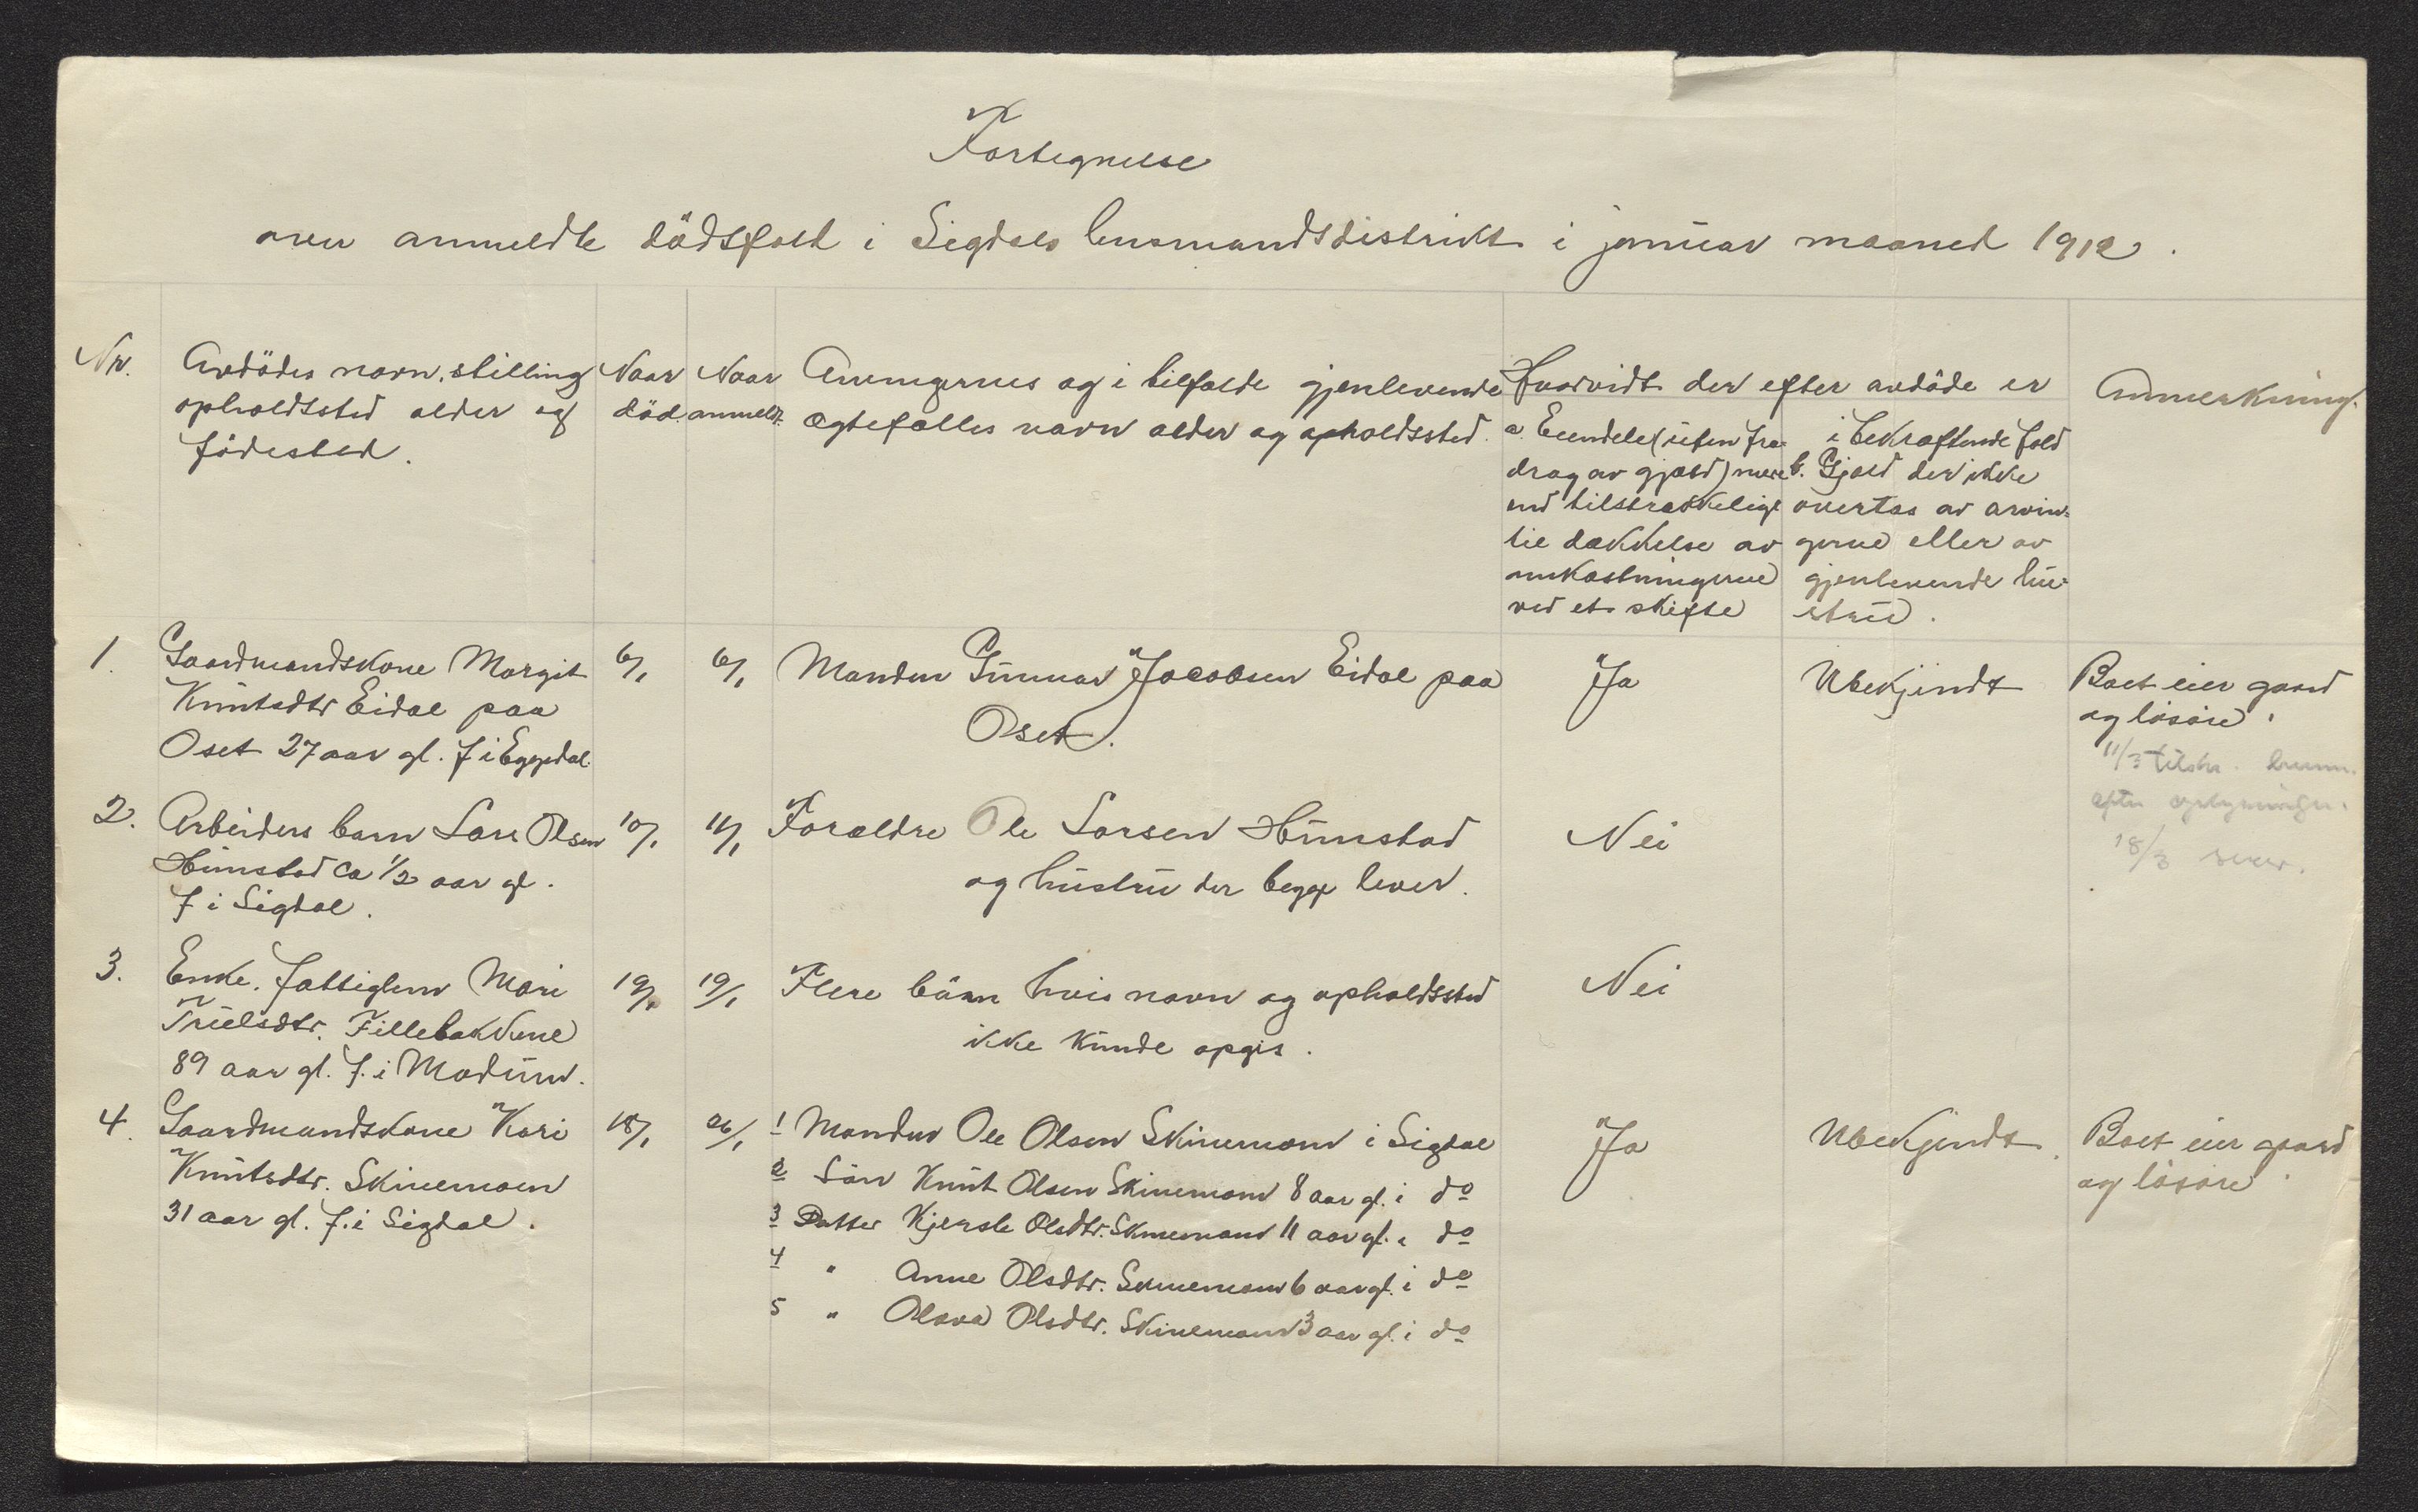 Fortegnelse
over anmeldte dödsfald i Sigdals lensmandsdistrikt i januar maaned 1912.
Nr.
Avdödes navn, stilling
opholdssted alder og
födested.
Naar
död.
Naar
anmeldt.
Arvingernes og i tilfælde gjenlevende
ægtefælles navn alder og opholdssted.
Hvorvidt der efter avdöde er
a. Eiendele (uten fra-
drag av gjæld) mere
end tilstrækkelige
til dækkelse av
omkostningerne
ved et skifte
i bekræftende fald
b. Gjæld der ikke
overtas av arvin-
gerne eller av
gjenlevende hu-
stru.
Anmerkning.
1.
Gaardmandskone Margit
Knutsdtr Eidal paa
Oset 27 aar gl. f i Eggedal.
6/1
6/1
Manden Gunnar Jacobsen Eidal paa
Oset.
Ja
Ubekjendt
Boet eier gaard
og lösöre.
11/3 tilskr.
18/3
2.
Arbeiders barn Lars Olsen
Hunstad ca 1/2 aar gl.
f i Sigdal.
10/1
11/1
Forældre Ole Larsen Hunstad
og hustru der begge lever.
Nei
3.
Enke, fattiglem Mari
Truelsdtr. Fillebakkene
89 aar gl. f. i Modum.
19/1
19/1
Flere bärn hvis navn og opholdssted
ikke kunde opgis.
Nei
4.
Gaardmandskone Kari
Knutsdtr. Skinemoen
31 aar gl. f. i Sigdal.
18/1
26/1
1 Manden Ole Olsen Skinemoen i Sigdal
2 Sön Knut Olsen Skinemoen 8 aar gl. i do
3 Datter Kjersti Olsdtr. Skinemoen 11 aar gl. i do
4 " Anne Olsdtr. Skinemoen 6 aar gl. i do
5 " Olava Olsdtr. Skinemoen 3 aar gl. i do
Ja
Ubekjendt.
Boet eier gaard
og lösöre.